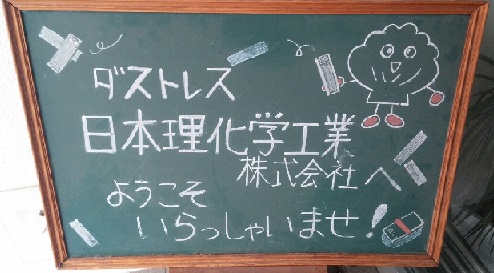 ダストレス
日本理化学工業
株式会社へ
ようこそ
いらっしゃいませ!